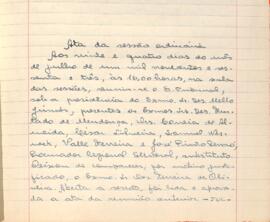 Ata da sessão ordinária
Aos vinte e quatro dias do mês
de julho de um mil novecentos e ses-
senta e três, às 16,00 horas, na sala
das sessões, reuniu-se o E. Tribunal,
sob a presidência do Exmo. Sr. Des. Mello
Júnior, presentes os Exmos. Srs. Des.
de Mendonça, Drs. Corrêa de Al-
meida, César Silveira, Samuel Wer-
neck, Valle Ferreira e José Pinto
Procurador Regional Eleitoral, substituto.
Deixou de comparecer, por motivo justi-
ficado, o Exmo. Sr. Des. Ferreira de Oli-
veira. Aberta a sessão, foi lida e aprova-
da a ata da reunião anterior.